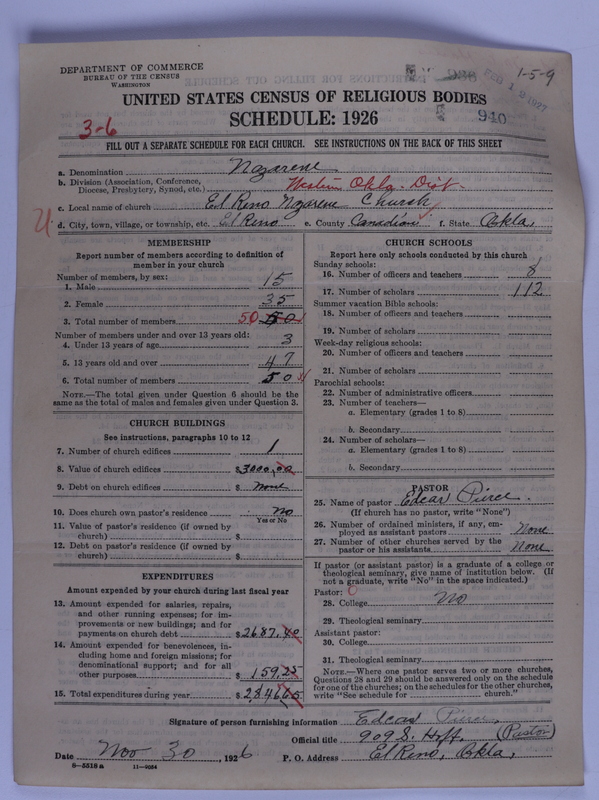 DEPARTMENT OF COMMERCE
BUREAU OF THE CENSUS
WASHINGTON
936 FEB 12 1927 1-5-9
UNITED STATES CENSUS OF RELIGIOUS BODIES
SCHEDULE: 1926
940
3-6
FILL OUT A SEPARATE SCHEDULE FOR EACH CHURCH. SEE INSTRUCTIONS ON THE BACK OF THIS SHEET
a. Denomination Nazarene
b. Division (Association, Conference, Diocese, Presbytery, Synod, etc.) Western Okla. Dist.
c. Local name of church El Reno Nazarene Church
d. City, town, village, or township, etc. El Reno e. County Canadian f. State Okla,
MEMBERSHIP
Report number of members according to definition of
member in your church
Number of members, by sex:
1. Male 15
2. Female 35
3. Total number of members 50 50
Number of members under and over 13 years old:
4. Under 13 years of age 3
5. 13 years old and over 47
6. Total number of members 50
NOTE.—The total given under Question 6 should be
same as the total of males and females given under Question 3.
CHURCH BUILDINGS
See instructions, paragraphs 10 to 12
7. Number of church edifices 1
8. Value of church edifices $3000.00
9. Debt on church edifices $ None
10. Does church own pastor's residence No
Yes or No
11. Value of pastor's residence (if owned by
church) $
12. Debt on pastor's residence (if owned by
church) $
EXPENDITURES
Amount expended by your church during last fiscal year
13. Amount expended for salaries, repairs,
and other running expenses; for im-
provements or new buildings; and for
payments on church debt $2687.40
14. Amount expended for benevolences,
including home and foreign missions; for
denominational support; and for all
other purposes $159.25
15. Total expenditures during year $2846.65
CHURCH SCHOOLS
Report here only schools conducted by this church
Sunday schools:
16. Number of officers and teachers 8
17. Number of scholars 112
Summer vacation Bible schools:
18. Number of officers and teachers
19. Number of scholars
Week-day religious schools:
20. Number of officers and teachers
21. Number of scholars
Parochial schools:
22. Number of administrative officers
23. Number of teachers—
a. Elementary (grades 1 to 8)
b. Secondary
24. Number of scholars—
a. Elementary (grades 1 to 8)
b. Secondary
PASTOR
25. Name of pastor Edcar Pierce.
(If church has no pastor, write "None")
26. Number of ordained ministers, if any, em-
ployed as assistant pastors None
27. Number of other churches served by the
pastor or his assistants None
If pastor (or assistant pastor) is a graduate of a college or
theological seminary, give name of institution below. (If
not a graduate, write "No" in the space indicated.)
Pastor: 0
28. College No
29. Theological seminary
Assistant pastor:
30. College
31. Theological seminary
NOTE.—Where one pastor serves two or more churches,
Questions 28 and 29 should be answered only on the schedule
for one of the churches; on the schedules for the other churches,
write "See schedule for church."
Signature of person furnishing information Edcar Pierce
Official title 909 S. Hoff. (Pastor)
Date Nov 30, 1926 P. O. Address El Reno, Okla,
8—5518a 11—9054